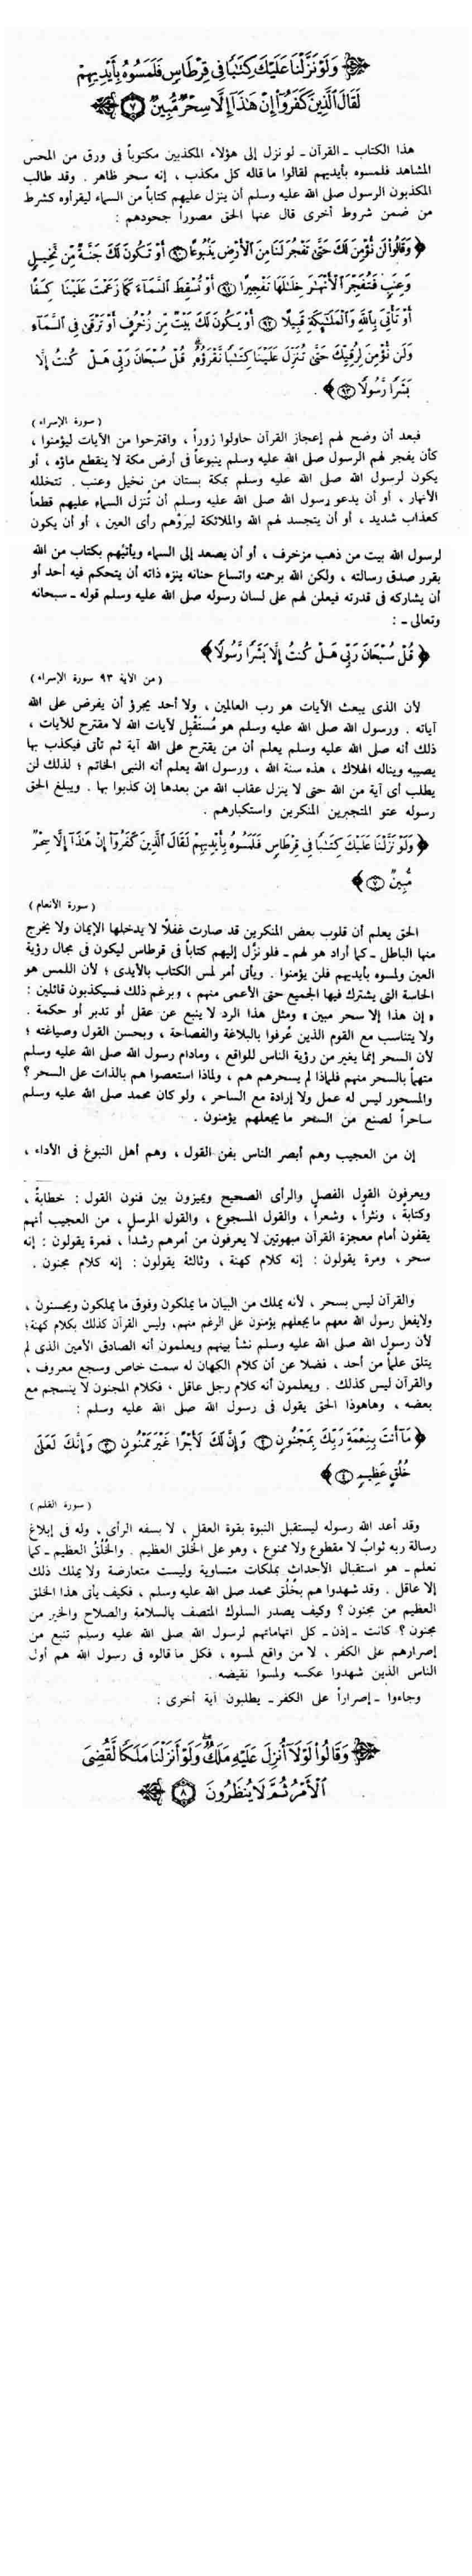 وَلَوْ نَزَّلْنَا عَلَيْكَ كِتَٰبًا فِي قِرْطَاسٍ فَلَمَسُوهُ بِأَيْدِيهِمْ
لَقَالَ ٱلَّذِينَ كَفَرُوٓا۟ إِنْ هَٰذَآ إِلَّا سِحْرٌ مُّبِينٌ ٧
هذا الكتاب ـ القرآن ـ لو نزل إلى هؤلاء المكذبين مكتوباً فى ورق من المحس
المشاهد فلمسوه بأيديهم لقالوا ما قاله كل مكذب ، إنه سحر ظاهر . وقد طالب
المكذبون الرسول صلى الله عليه وسلم أن ينزل عليهم كتاباً من السماء ليقرأوه كشرط
من ضمن شروط أخرى قال عنها الحق مصوراً جحودهم :
﴿ وَقَالُوا۟ لَن نُّؤْمِنَ لَكَ حَتَّىٰ تَفْجُرَ لَنَا مِنَ ٱلْأَرْضِ يَنۢبُوعًا ٩٠ أَوْ تَكُونَ لَكَ جَنَّةٌ مِّن نَّخِيلٍ
وَعِنَبٍ فَتُفَجِّرَ ٱلْأَنْهَٰرَ خِلَٰلَهَا تَفْجِيرًا ٩١ أَوْ تُسْقِطَ ٱلسَّمَآءَ كَمَا زَعَمْتَ عَلَيْنَا كِسَفًا
أَوْ تَأْتِيَ بِٱللَّهِ وَٱلْمَلَٰٓئِكَةِ قَبِيلًا ٩٢ أَوْ يَكُونَ لَكَ بَيْتٌ مِّن زُخْرُفٍ أَوْ تَرْقَىٰ فِي ٱلسَّمَآءِ
وَلَن نُّؤْمِنَ لِرُقِيِّكَ حَتَّىٰ تُنَزِّلَ عَلَيْنَا كِتَٰبًا نَّقْرَؤُهُۥ قُلْ سُبْحَانَ رَبِّي هَلْ كُنتُ إِلَّا
بَشَرًا رَّسُولًا ٩٣ ﴾ .
( سورة الإسراء )
فبعد أن وضح لهم إعجاز القرآن حاولوا زوراً ، واقترحوا من الآيات ليؤمنوا ،
كأن يفجر لهم الرسول صلى الله عليه وسلم ينبوعاً فى أرض مكة لا ينقطع ماؤه ، أو
يكون لرسول الله صلى الله عليه وسلم بمكة بستان من نخيل وعنب . تتخلله
الأنهار ، أو أن يدعو رسول الله صلى الله عليه وسلم أن تُنزل السماء عليهم قطعاً
كعذاب شديد ، أو أن يتجسد لهم الله والملائكة ليرَوْهم رأى العين ، أو أن يكون
لرسول الله بيت من ذهب مزخرف ، أو أن يصعد إلى السماء ويأتيهم بكتاب من الله
يقرر صدق رسالته ، ولكن الله برحمته واتساع حنانه ينزه ذاته أن يتحكم فيه أحد أو
أن يشاركه فى قدرته فيعلن لهم على لسان رسوله صلى الله عليه وسلم قوله ـ سبحانه
وتعالى ـ :
﴿ قُلْ سُبْحَانَ رَبِّي هَلْ كُنتُ إِلَّا بَشَرًا رَّسُولًا ﴾
( من الآية ٩٣ سورة الإسراء )
لأن الذى يبعث الآيات هو رب العالمين ، ولا أحد يجرؤ أن يفرض على الله
آياته . ورسول الله صلى الله عليه وسلم هو مُستَقْبِل لآيات الله لا مقترح للآيات ،
ذلك أنه صلى الله عليه وسلم يعلم أن من يقترح على الله آية ثم تأتى فيكذب بها
يصيبه ويناله الهلاك ، هذه سنة الله ، ورسول الله يعلم أنه النبى الخاتم ؛ لذلك لن
يطلب أى آية من الله حتى لا ينزل عقاب الله من بعدها إن كذبوا بها . ويبلغ الحق
رسوله عتو المتجبرين المنكرين واستكبارهم .
﴿ وَلَوْ نَزَّلْنَا عَلَيْكَ كِتَٰبًا فِي قِرْطَاسٍ فَلَمَسُوهُ بِأَيْدِيهِمْ لَقَالَ ٱلَّذِينَ كَفَرُوٓا۟ إِنْ هَٰذَآ إِلَّا سِحْرٌ
مُّبِينٌ ٧ ﴾
( سورة الأنعام )
الحق يعلم أن قلوب بعض المنكرين قد صارت غفلًا لا يدخلها الإيمان ولا يخرج
منها الباطل ـ كما أراد هو لهم ـ فلو نزَّل إليهم كتاباً فى قرطاس ليكون فى مجال رؤية
العين ولمسوه بأيديهم فلن يؤمنوا . ويأتى أمر لمس الكتاب بالأيدى ؛ لأن اللمس هو
الحاسة التى يشترك فيها الجميع حتى الأعمى منهم ، وبرغم ذلك فسيكذبون قائلين :
« إن هذا إلا سحر مبين » ومثل هذا الرد لا ينبع عن عقل أو تدبر أو حكمة .
ولا يتناسب مع القوم الذين عُرفوا بالبلاغة والفصاحة ، وبحسن القول وصياغته ؛
لأن السحر إنما يغير من رؤية الناس للواقع ، ومادام رسول الله صلى الله عليه وسلم
متهماً بالسحر منهم فلماذا لم يسحرهم هم ، ولماذا استعصوا هم بالذات على السحر ؟
والمسحور ليس له عمل ولا إرادة مع الساحر ، ولو كان محمد صلى الله عليه وسلم
ساحراً لصنع من السحر ما يجعلهم يؤمنون .
إن من العجيب وهم أبصر الناس بفن القول ، وهم أهل النبوغ فى الأداء ،
ويعرفون القول الفصل والرأى الصحيح ويميزون بين فنون القول : خطابةً ،
وكتابةً ، ونثراً ، وشعراً ، والقول المسجوع ، والقول المرسل ، من العجيب أنهم
يقفون أمام معجزة القرآن مبهوتين لا يعرفون من أمرهم رشداً ، فمرة يقولون : إنه
سحر ، ومرة يقولون : إنه كلام كهنة ، وثالثة يقولون : إنه كلام مجنون .
والقرآن ليس بسحر ، لأنه يملك من البيان ما يملكون وفوق ما يملكون ويحسنون ،
ولايفعل رسول الله معهم ما يجعلهم يؤمنون على الرغم منهم، وليس القرآن كذلك بكلام كهنة؛
لأن رسول الله صلى الله عليه وسلم نشأ بينهم ويعلمون أنه الصادق الأمين الذى لم
يتلق علماً من أحد ، فضلا عن أن كلام الكهان له سمت خاص وسجع معروف ،
والقرآن ليس كذلك . ويعلمون أنه كلام رجل عاقل ، فكلام المجنون لا ينسجم مع
بعضه ، وهاهوذا الحق يقول فى رسول الله صلى الله عليه وسلم :
﴿ مَآ أَنتَ بِنِعْمَةِ رَبِّكَ بِمَجْنُونٍ ٢ وَإِنَّ لَكَ لَأَجْرًا غَيْرَ مَمْنُونٍ ٣ وَإِنَّكَ لَعَلَىٰ
خُلُقٍ عَظِيمٍ ٤ ﴾
( سورة القلم )
وقد أعد الله رسوله ليستقبل النبوة بقوة العقل ، لا بسفه الرأى ، وله فى إبلاغ
رسالة ربه ثوابٌ لا مقطوع ولا ممنوع ، وهو على الخُلق العظيم . والخُلُق العظيم ـ كما
نعلم ـ هو استقبال الأحداث بملكات متساوية وليست متعارضة ولا يملك ذلك
إلا عاقل . وقد شهدوا هم بخُلُق محمد صلى الله عليه وسلم ، فكيف يأتى هذا الخلق
العظيم من مجنون ؟ وكيف يصدر السلوك المتصف بالسلامة والصلاح والخير من
مجنون ؟ كانت ـ إذن ـ كل اتهاماتهم لرسول الله صلى الله عليه وسلم تنبع من
إصرارهم على الكفر ، لا من واقع لمسوه ، فكل ما قالوه فى رسول الله هم أول
الناس الذين شهدوا عكسه ولمسوا نقيضه .
وجاءوا ـ إصراراً على الكفر ـ يطلبون آية أخرى :
وَقَالُوا۟ لَوْلَآ أُنزِلَ عَلَيْهِ مَلَكٌ وَلَوْ أَنزَلْنَا مَلَكًا لَّقُضِيَ
ٱلْأَمْرُ ثُمَّ لَا يُنظَرُونَ ٨